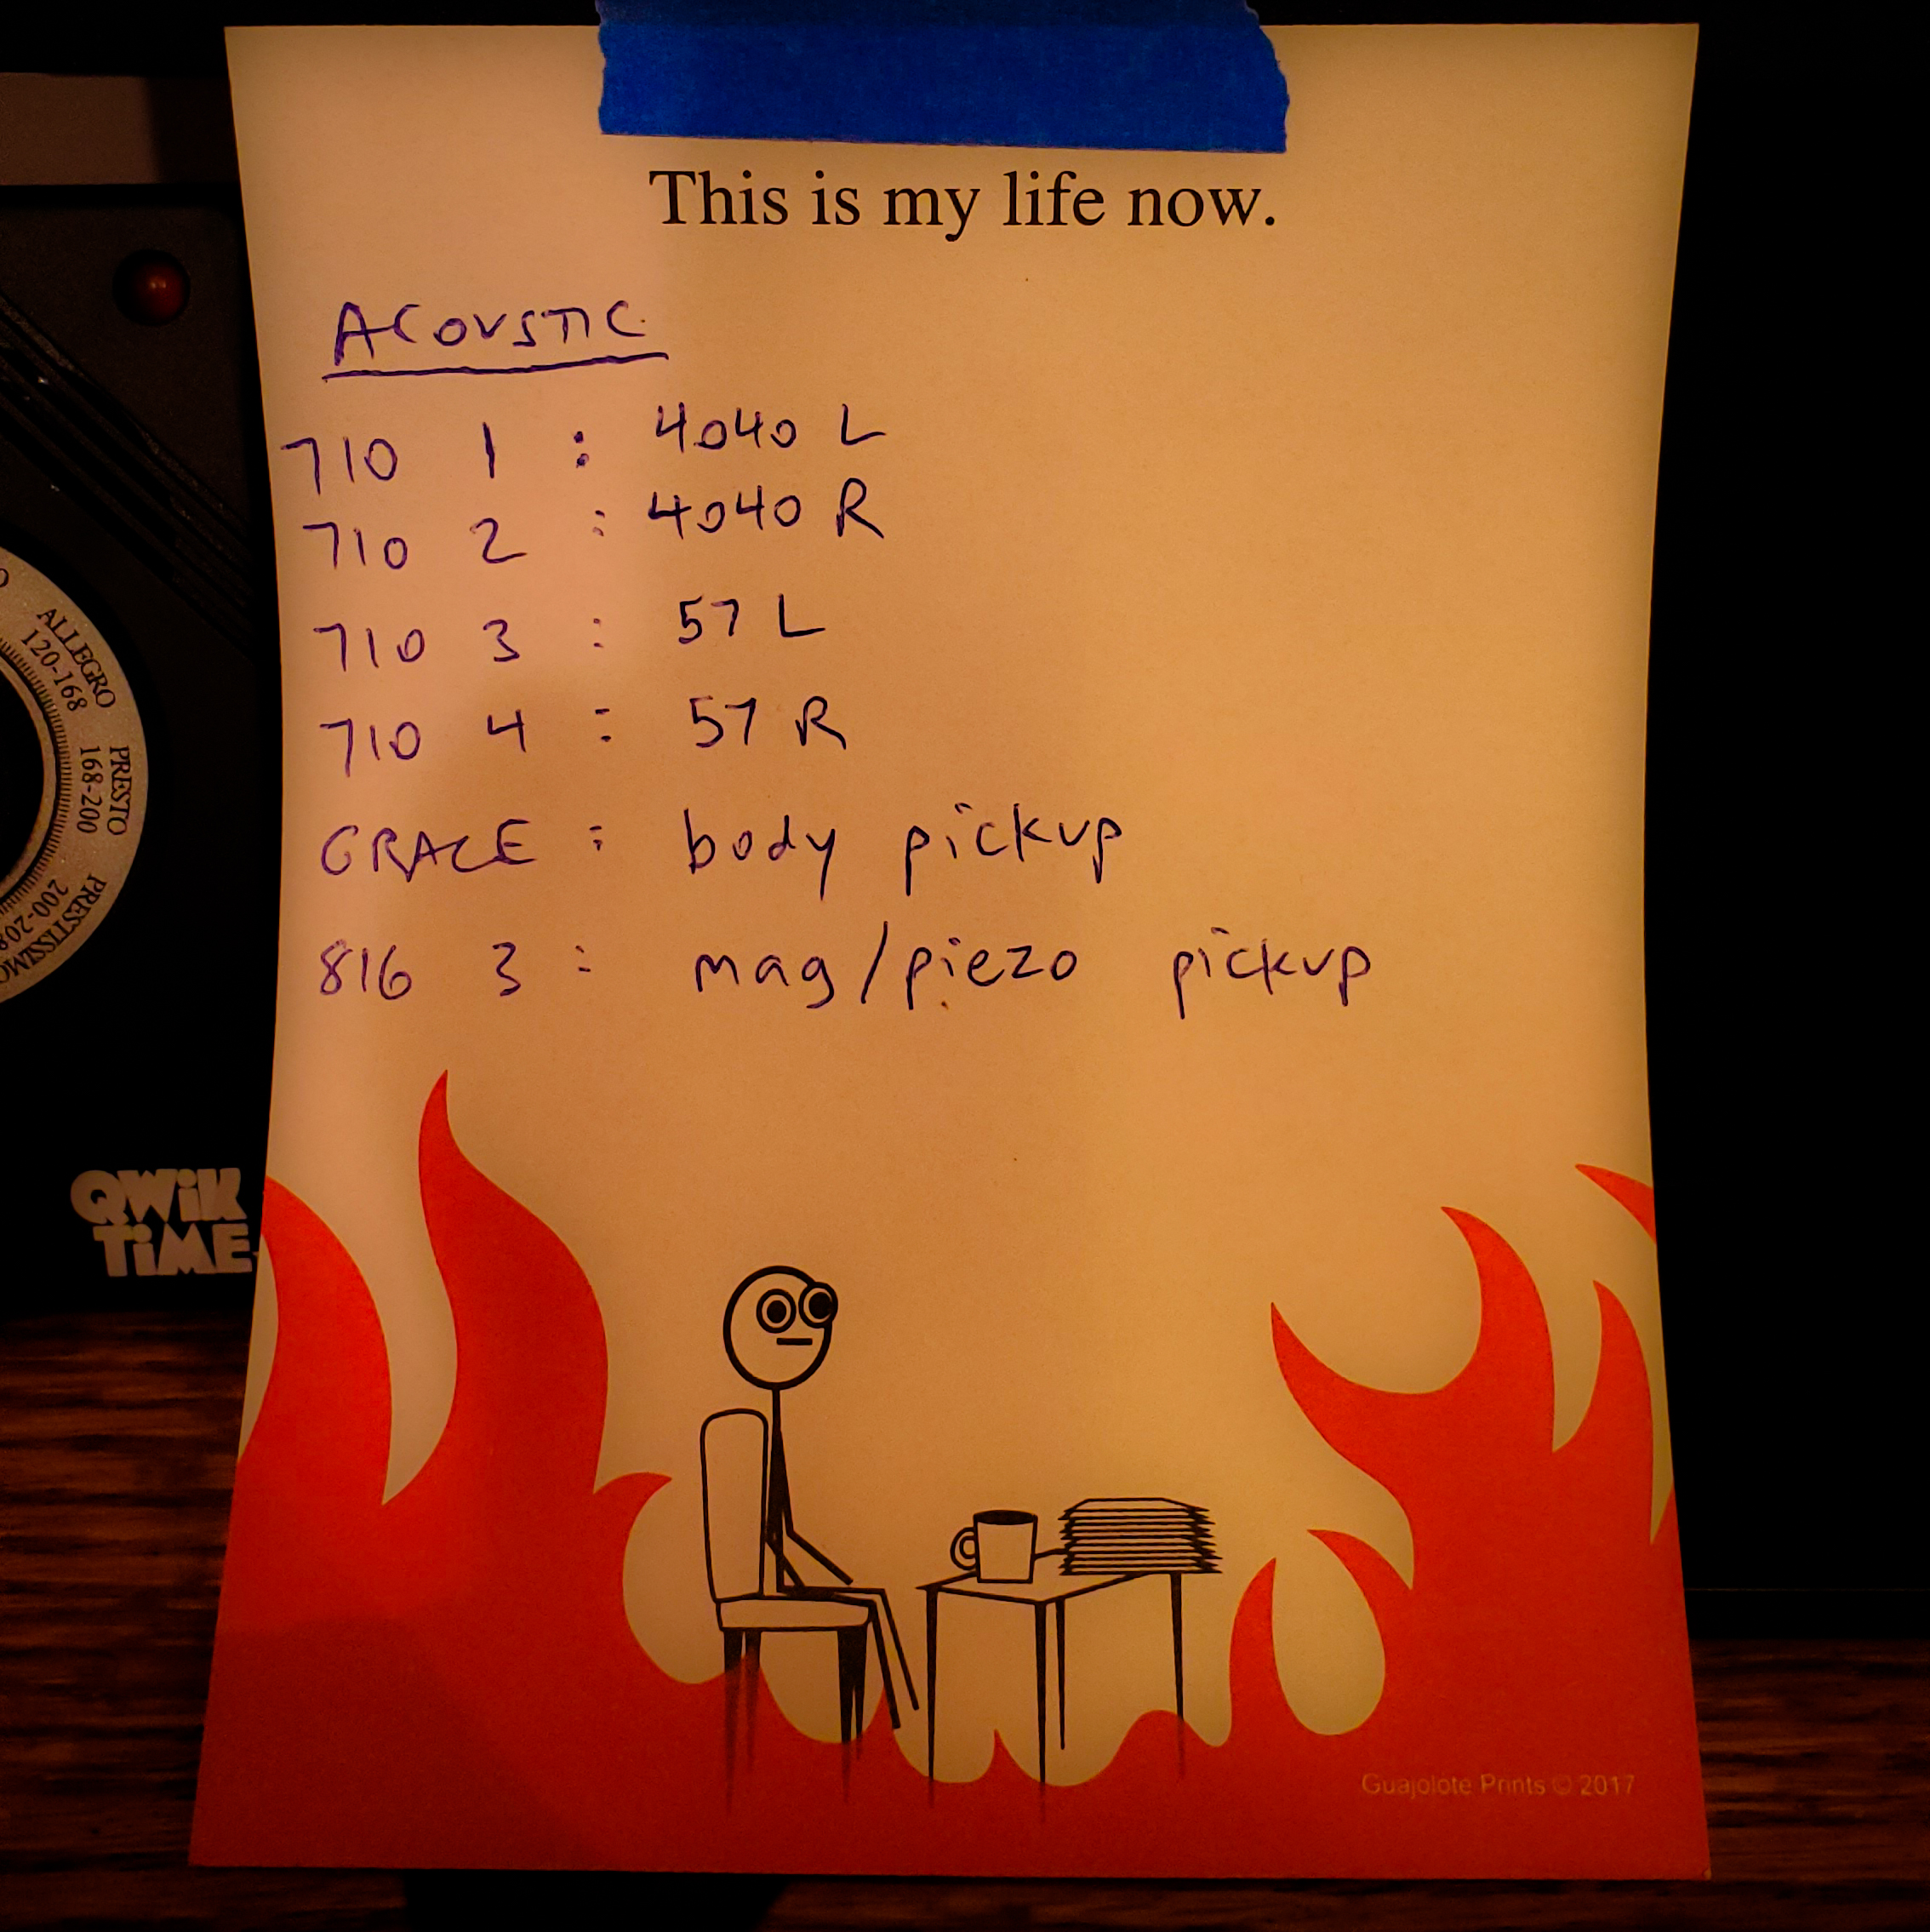 This is my life now.
ACOUSTIC
710 1 : 4040 L
710 2 : 4040 R
710 3 : 57 L
710 4 : 57 R
GRACE : body pickup
816 3 : mag/piezo pickup
ALLEGRO
120-168
PRESTO
168-200
PRESTISSIMO
200-208
QWiK
TiME
Guajolote Prints © 2017